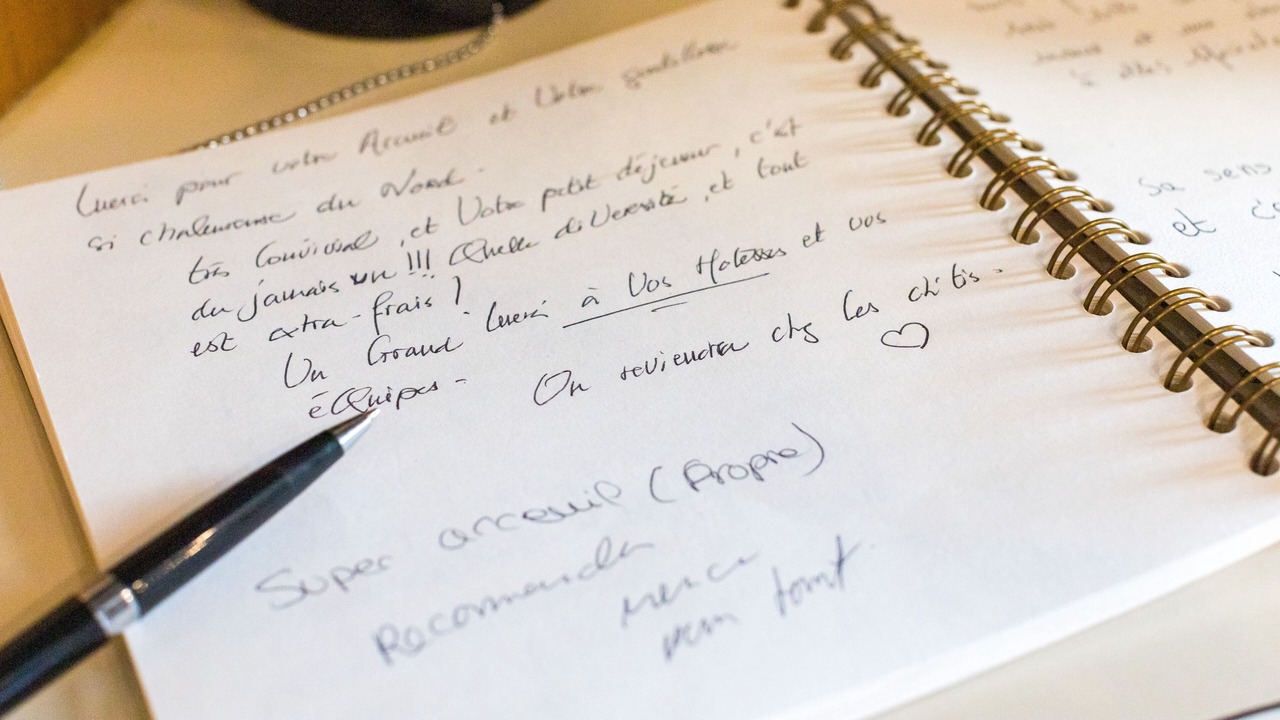 Merci pour votre Accueil et Votre gentillesse
si chaleureuse du Nord.
très Convivial, et Votre petit déjeuner, c'est
du jamais vu !!! Quelle diVersité, et tout
est extra-frais !
Un Grand Merci à Vos Hotesses et vos
éQuipes - On reviendra chez les chtis.
Super acceuil (Propre)
Recommander
merci
pour tout
sa sens
et